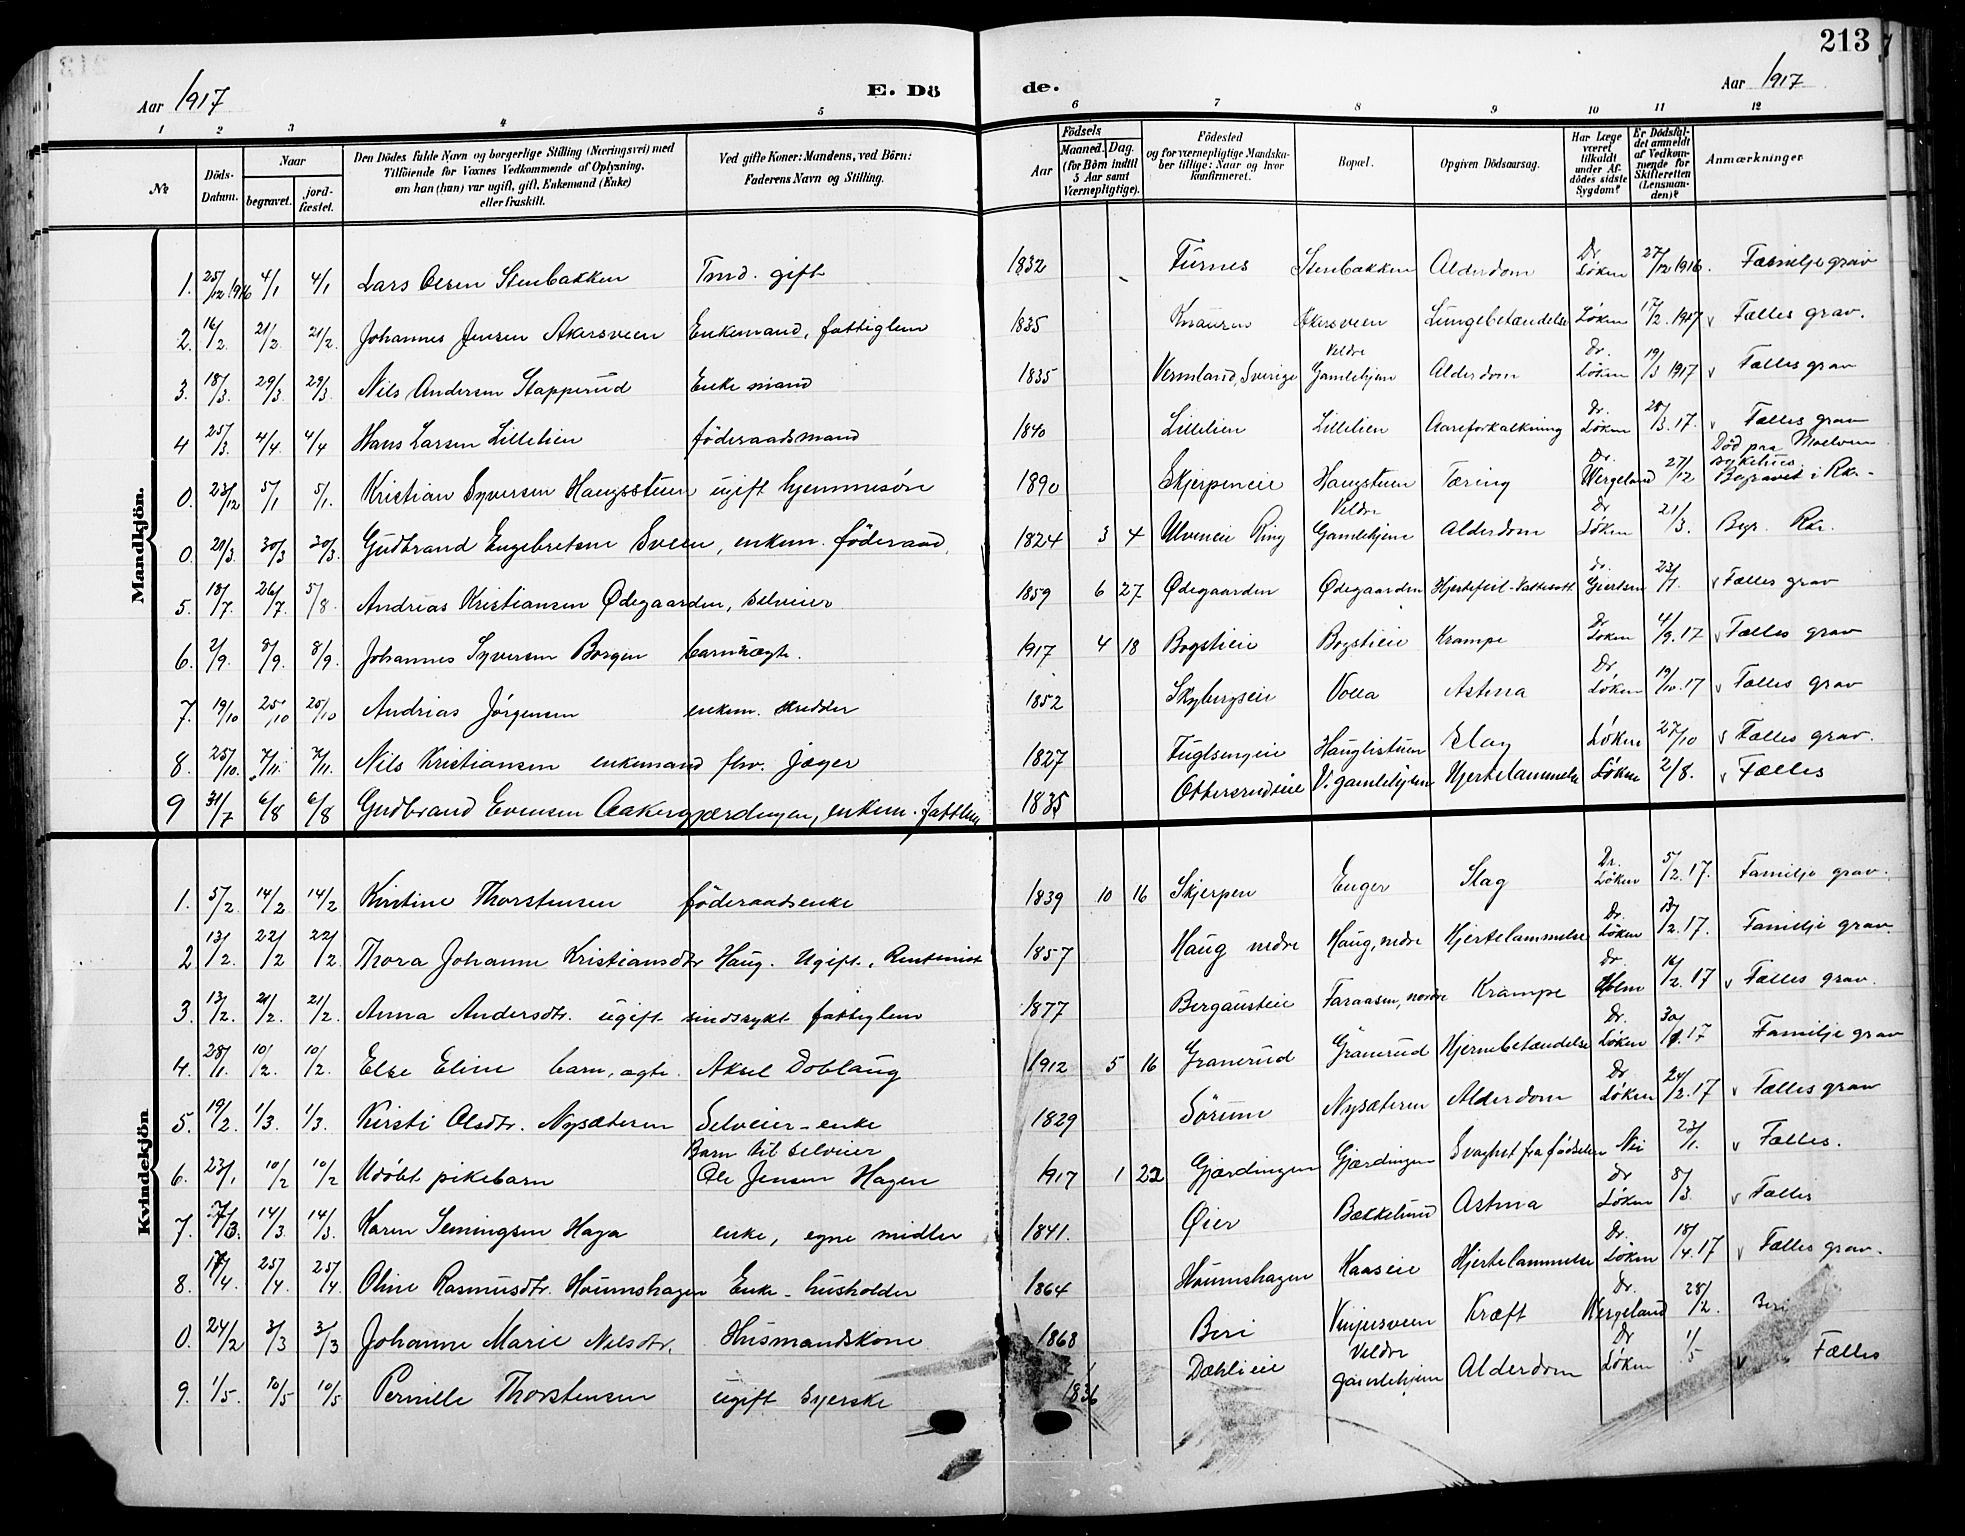 213
Aar 1917 E. Dö de. Aar 1917
1 2 3 4 5 6 7 8 9 10 11 12
№ Döds-Datum. Naar begravet. jord-fæstet. Den Dödes fulde Navn og borgerlige Stilling (Næringsvei) med Tilföiende for Voxnes Vedkommende af Oplysning, om han (hun) var ugift, gift, Enkemand (Enke) eller fraskilt. Ved gifte Koner: Mandens, ved Börn: Faderens Navn og Stilling. Födsels Aar Maaned. Dag. (for Börn indtil 5 Aar samt Værnepligtige). Födested og for værnepligtige Mandskaber tillige: Naar og hvor konfirmeret. Bopæl. Opgiven Dödsaarsag. Har Læge været tilkaldt under Afdödes sidste Sygdom? Er Dödsfaldet anmeldt af Vedkommende for Skifteretten (Lensmanden)? Anmærkninger
Mandkjön.
1. 25/12 1916 4/1 4/1 Lars Olsen Stenbakken Tmd. gift 1832 Furnes Stenbakken Alderdom Dr. Løken 27/12 1916. Familje grav
2. 16/2 21/2 21/2. Johannes Jensen Akersveen Enkemand, fattiglem 1835 Akersveen Lungebetændelse Løken 17/2. 1917 v Fælles grav.
3. 18/3. 29/3 29/3. Nils Andersen Stapperud Enkemand 1835 Vermland, Sverige Veldre Gamlehjem Alderdom Dr. Løken 19/3 1917 v Fælles grav
4 25/3. 4/4. 4/4 Hans Larsen Lillelien föderaadsmand 1840 Lillelien Lillelien Aareforkalkning Dr. Løken 28/3. 17. v Fælles grav
0. 23/12 5/1 5/1. Kristian Syversen Haugsstuen ugift hjemmesön 1890 Skjerpeneie Haugstuen Tæring Dr. Wergeland 27/12 Död paa Moelven sykehus. Begravet i Rkr.
0. 20/3 30/3. Gudbrand Engebretsen Sveen, enkem. föderaad. 1824 3 4 Ulveneie Ring Veldre Gamlehjem Alderdom Dr Løken 21/3. Begr. Rkr.
5. 18/7. 26/7. 5/8. Andrias Kristiansen Ødegaarden, selveier 1859 6 27 Ødegaarden Ødegaarden Hjertefeil-Vattersott Dr. Gjertsen 23/7. v Fælles grav
6. 2/9. 8/9. 8/9. Johannes Syversen Borgen barn, ægte. 1917 4 18 Bogstieie Bogstieie Krampe Dr Løken 4/9. 17 v Fælles grav
7. 19/10 25/10 25/10 Andrias Jörgensen enkem. skredder 1852 Skybergseie Volla Astma Dr. Løken 19/10. 17 v Fælles grav
8. 25/10. 7/11. 7/11. Nils Kristiansen enkemand fhv. Jæger 1827 Fuglsengeie Slag Løken 27/10 v Fælles grav.
9 31/7 6/8 6/8 Gudbrand Evensen Aakergjærdingen, enkem. fattlem 1835 Ottersrudeie V. gamlehjem Hjertelammelse Løken 2/8. v Fælles
Kvindekjön
1. 5/2. 14/2 14/2 Kirstine Thorstensen föderaadsenke 1839 10 16 Skjerpen Enger Slag Dr. Løken 5/2. 17. Familje grav.
2 13/2. 22/2 22/2. Thora Johanne Kristiansdtr Haug. Ugift. Rentenist 1857 Haug nedre Haug, nedre Hjertelammelse Dr. Løken 13/2. 17. Familje grav.
3. 13/2. 21/2. 21/2. Anna Andersdtr. ugift sindssykt fattiglem 1877 Bergausteie Faraasen, nordre Krampe Dr. Holm 16/2. 17 v Fælles grav.
4. 28/1. 10/2. 10/2. Else Eline barn, egte. Aksel Doblaug 1912 5 16 Granerud Granerud Hjernebetændelse Dr. Løken 30/1. 17 Familje grav
5. 19/2. 1/3. 1/3. Kirsti Olsdtr. Nysæteren Selveier-enke 1829 Sörum Nysæteren Alderdom Dr Løken 24/2. 17 v Fælles grav
6. 23/1 10/2 10/2 Udöbt pikebarn Barn til selveier Ole Jensen Hagen 1917 1 22 Gjærdingen Gjærdingen Svaghet fra fødselen Nei 23/1. v Fælles.
7. 7/3. 14/3 14/3. Karen Semingsen Haga enke, egne midler 1841. Øier Astma Dr Løken 8/3. v Fælles
8. 17/4. 25/4 25/4. Oline Rasmusdtr. Houmshagen Enke - husholder 1864 Houmshagen Kaaseie Hjertelammelse Dr. Løken 18/4. 17 v Fælles grav.
0. 24/2 3/3 3/3 Johanne Marie Nilsdtr. Husmandskone 1868 Biri Vinjusveen Kræft Dr. Wergeland 28/2. Biri
9. 1/5. 10/5 10/5 Pernille Thorstensen ugift Syerske 1836 Dæhlieie Veldre gamlehjem Alderdom Dr Løken 1/5 v Fælles